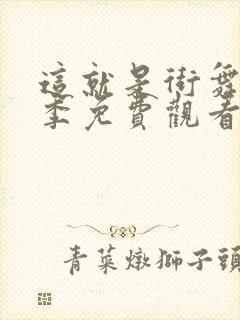 這就是街舞
季免費觀看
青菜燉獅子頭